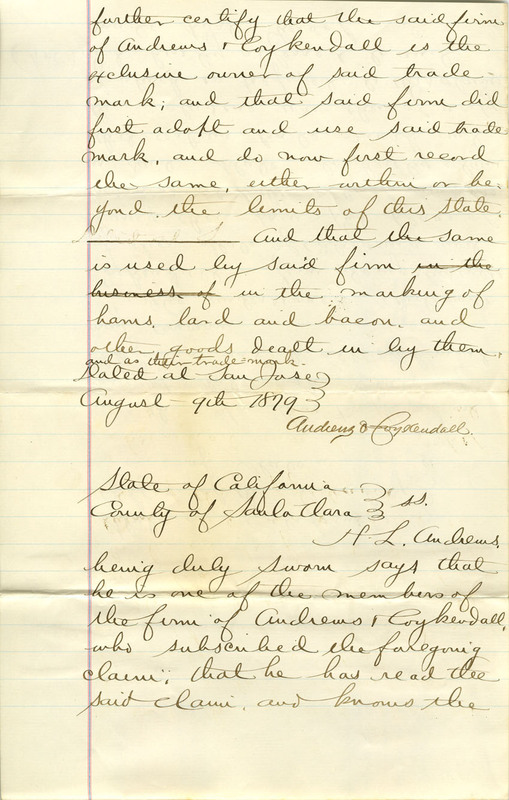 further certify that the said firm
of Andrews & Coykendall is the
exclusive owner of said trade-
mark; and that said firm did
first adopt and use said trade-
mark, and do now first record
the same, either within or be-
yond, the limits of this State.
And that the same
is used by said firm in the
business of in the marking of
hams, lard and bacon, and
other goods dealt in by them,
and as their trade-mark.
Dated at San Jose
August 9th 1879
Andrews & Coykendall.
State of California
County of Santa Clara } ss.
H. L. Andrews,
being duly sworn says that
he is one of the members of
the firm of Andrews & Coykendall,
who subscribed the foregoing
claim; that he has read the
said claim, and knows the